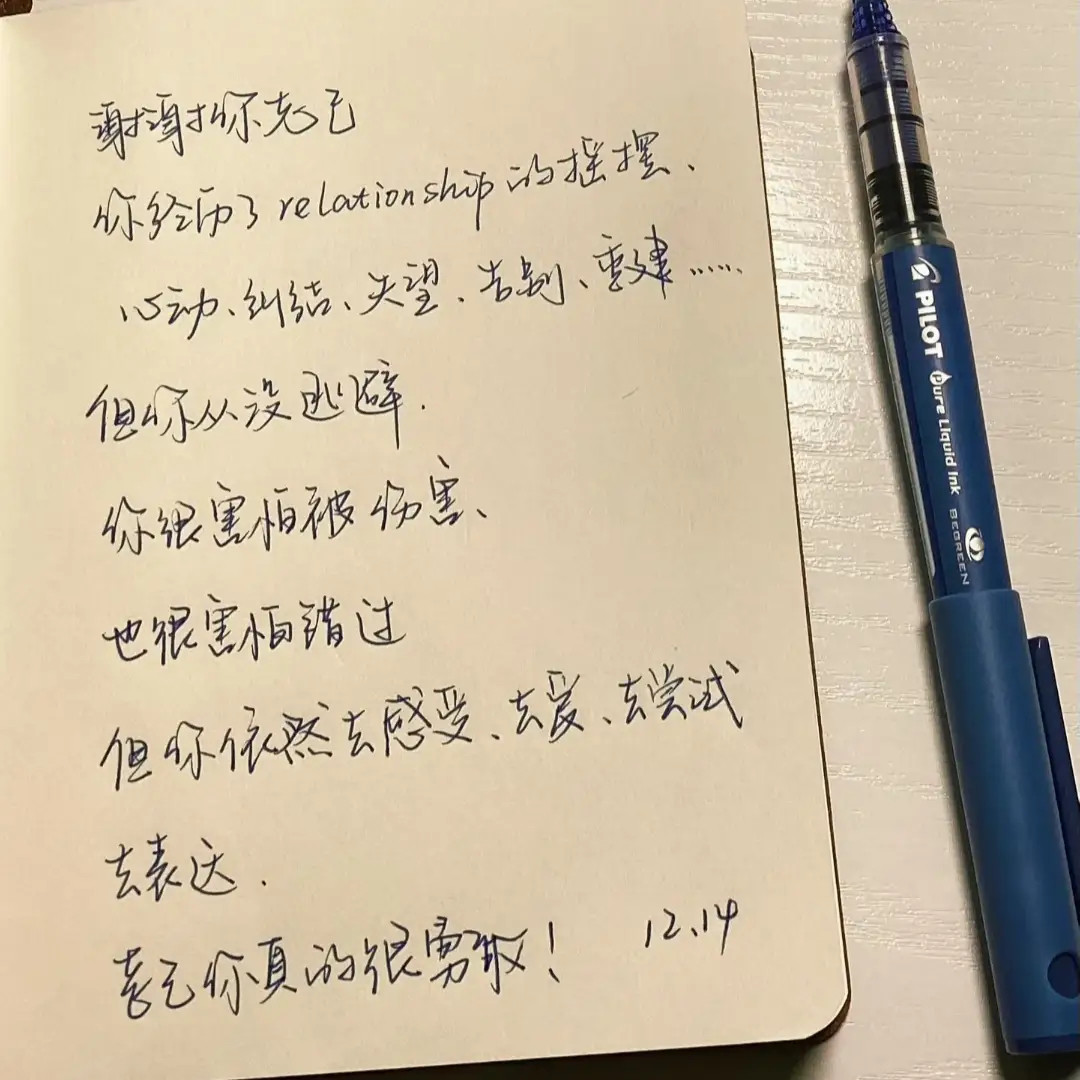 谢谢你
你经历了relationship的摇摆、
心动、纠结、失望、告别、重建……
但你从没逃避.
你很害怕被伤害、
也很害怕错过
但你依然去感受、去爱、去尝试
去表达.
你真的很勇敢！ 12.14
PILOT Pure Liquid Ink BEGREEN